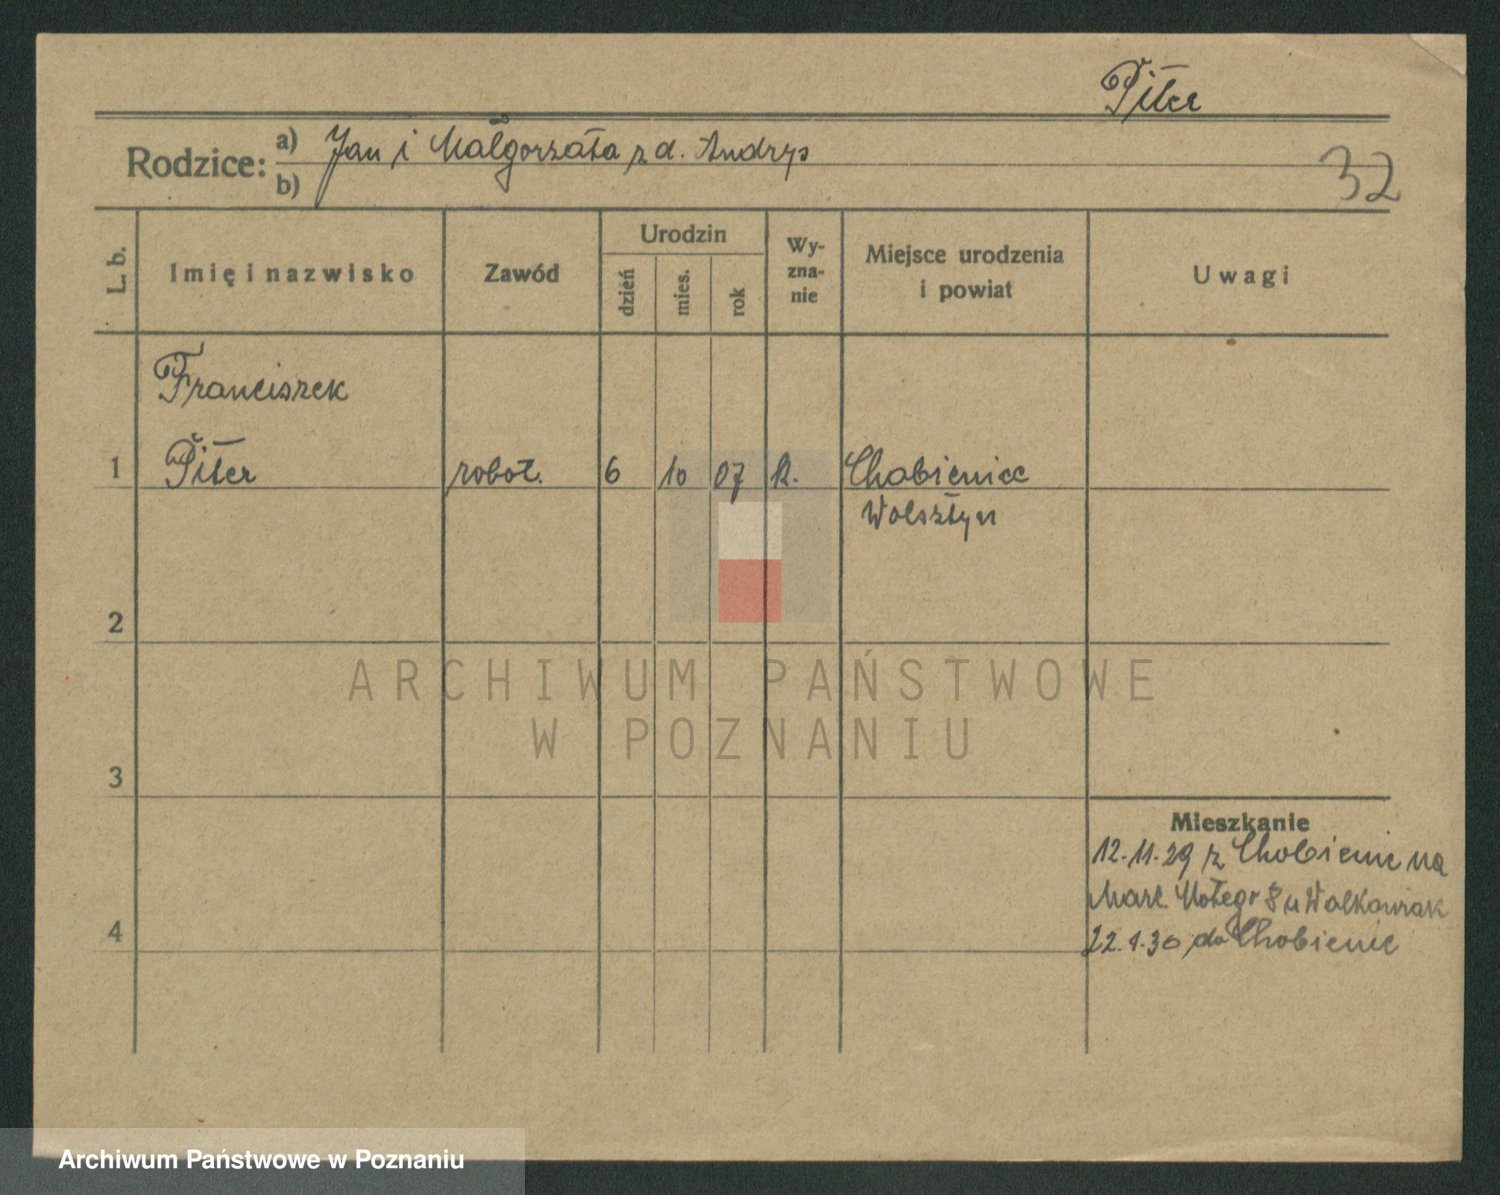 Piter
Rodzice: a) Jan i Małgorzata z d. Andrys
b)
32
L. b.
Imię i nazwisko
Zawód
Urodzin
dzień
mies.
rok
Wy-
zna-
nie
Miejsce urodzenia
i powiat
Uwagi
Franciszek
1 Piter robot. 6 10 07 k. Chobienice
Wolsztyn
2
ARCHIWUM PAŃSTWOWE
W POZNANIU
3
Mieszkanie
12.11.29 z Chobienic na
Marc. Mottego 8 u Walkowiak
4
22.1.30 do Chobienic
Archiwum Państwowe w Poznaniu